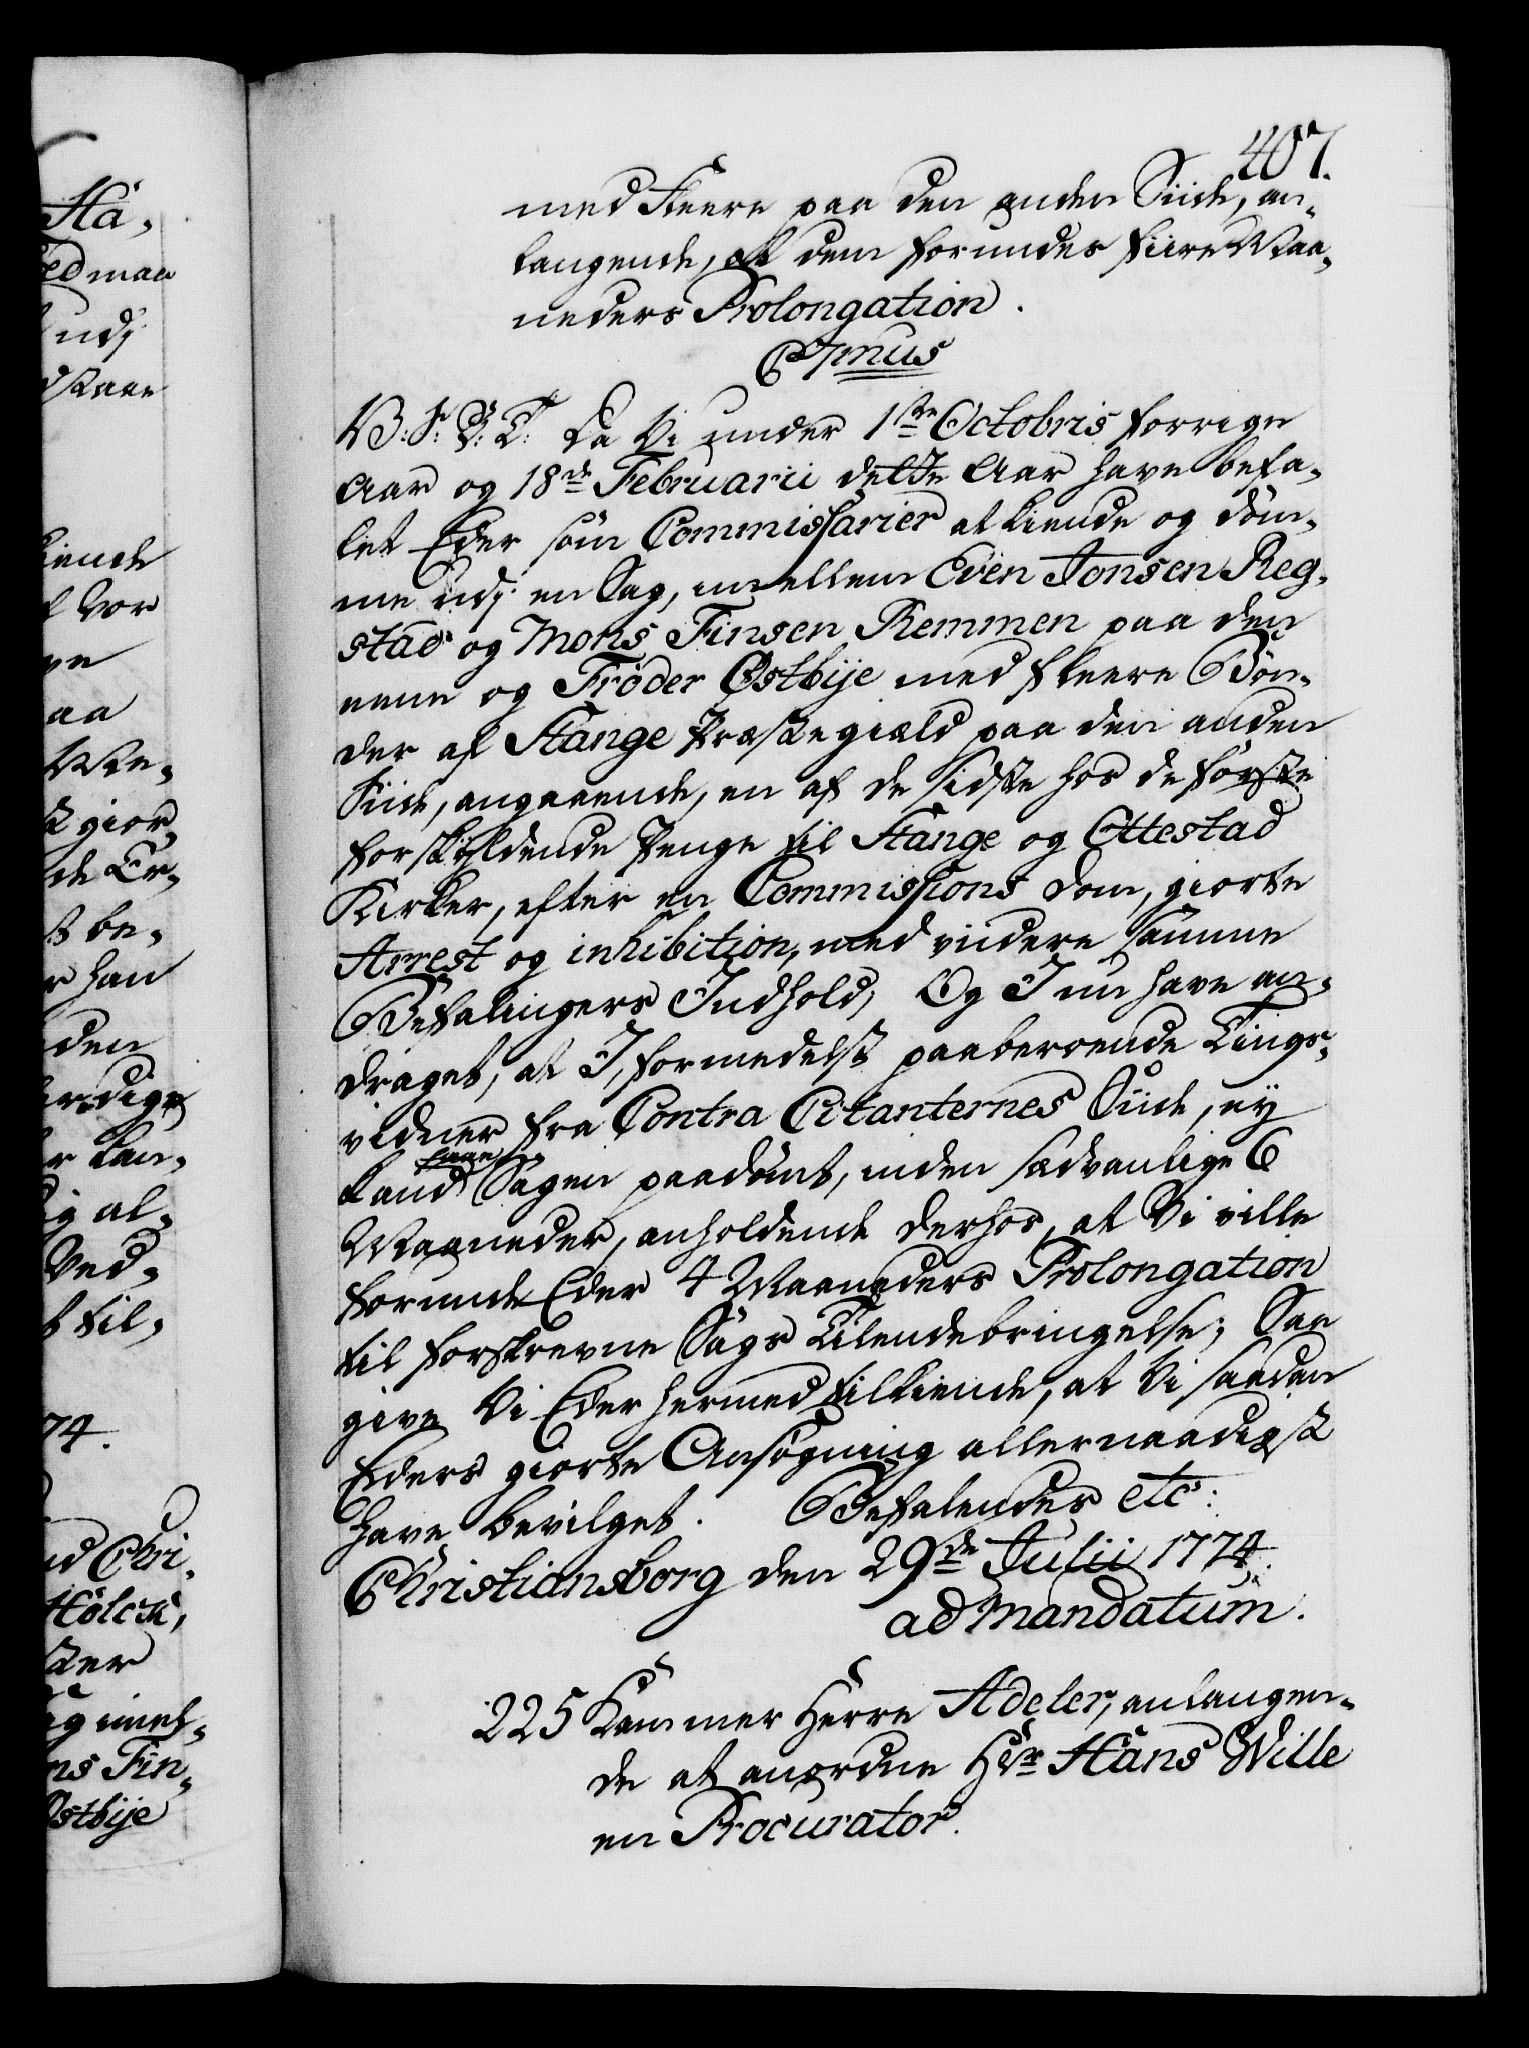 407.
med Fleere paa den anden Siide, an-
langende, at dem forundes fiire Maa-
neders Prolongation.
C 7mus
V: S: G: T: Da Vi under 1ste Octobris forrige
Aar og 18de Februarii dette Aar have befa-
let Eder som Commissarier at kiende og döm-
me udj en Sag, imellem Even Jonsen Reg-
stad og Mons Finsen Remmen paa den
eene og Fröder Østbije med fleere Bön-
der af Stange Præstegield paa den anden
Siide, angaaende, en af de sidste hos de förste
forskyldende Penge til Stange og Ottestad
Kirker, efter en Commissions Dom, giorte
Arrest og inhibition, med viidere samme
Befalingers Indhold; Og I nu have an-
draget, at I, formedelst paaberoende Tings-
vidner fra Contra Citanternes Siide, ey
kand faae Sagen paadömt, inden sædvanlige 6
Maaneder, anholdende derhos, at Vi ville
forunde Eder 4 Maaneders Prolongation
til forskrevne Sags Tilendebringelse; Saa
give Vi Eder hermed tilkiende, at Vi saadan
Eders giorte Ansögning allernaadigst
have bevilget. Befalendes etc:
Christiansborg den 29de Julii 1774.
ad Mandatum.
225 Kammer Herre Adeler, anlangen-
de at anordne Hr Hans Wille
en Procurator.
Ha-
edmaa
udj
kiende
Vor
aa
giör-
be-
han
den
kan-
al-
Ved-
til-
74.
Chri-
Holck,
imel-
ns Fin-
Østbije